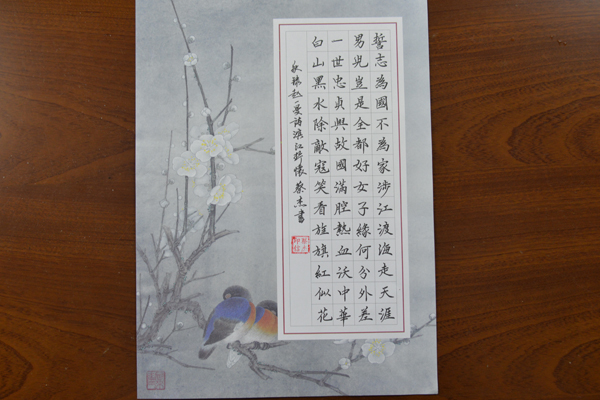 誓志為國不為家涉江渡海走天涯
男兒豈是全都好女子緣何分外差
一世忠貞興故國滿腔熱血沃中華
白山黑水除敵寇笑看旌旗紅似花
錄趙一曼詩濱江抒懷蔡杰書